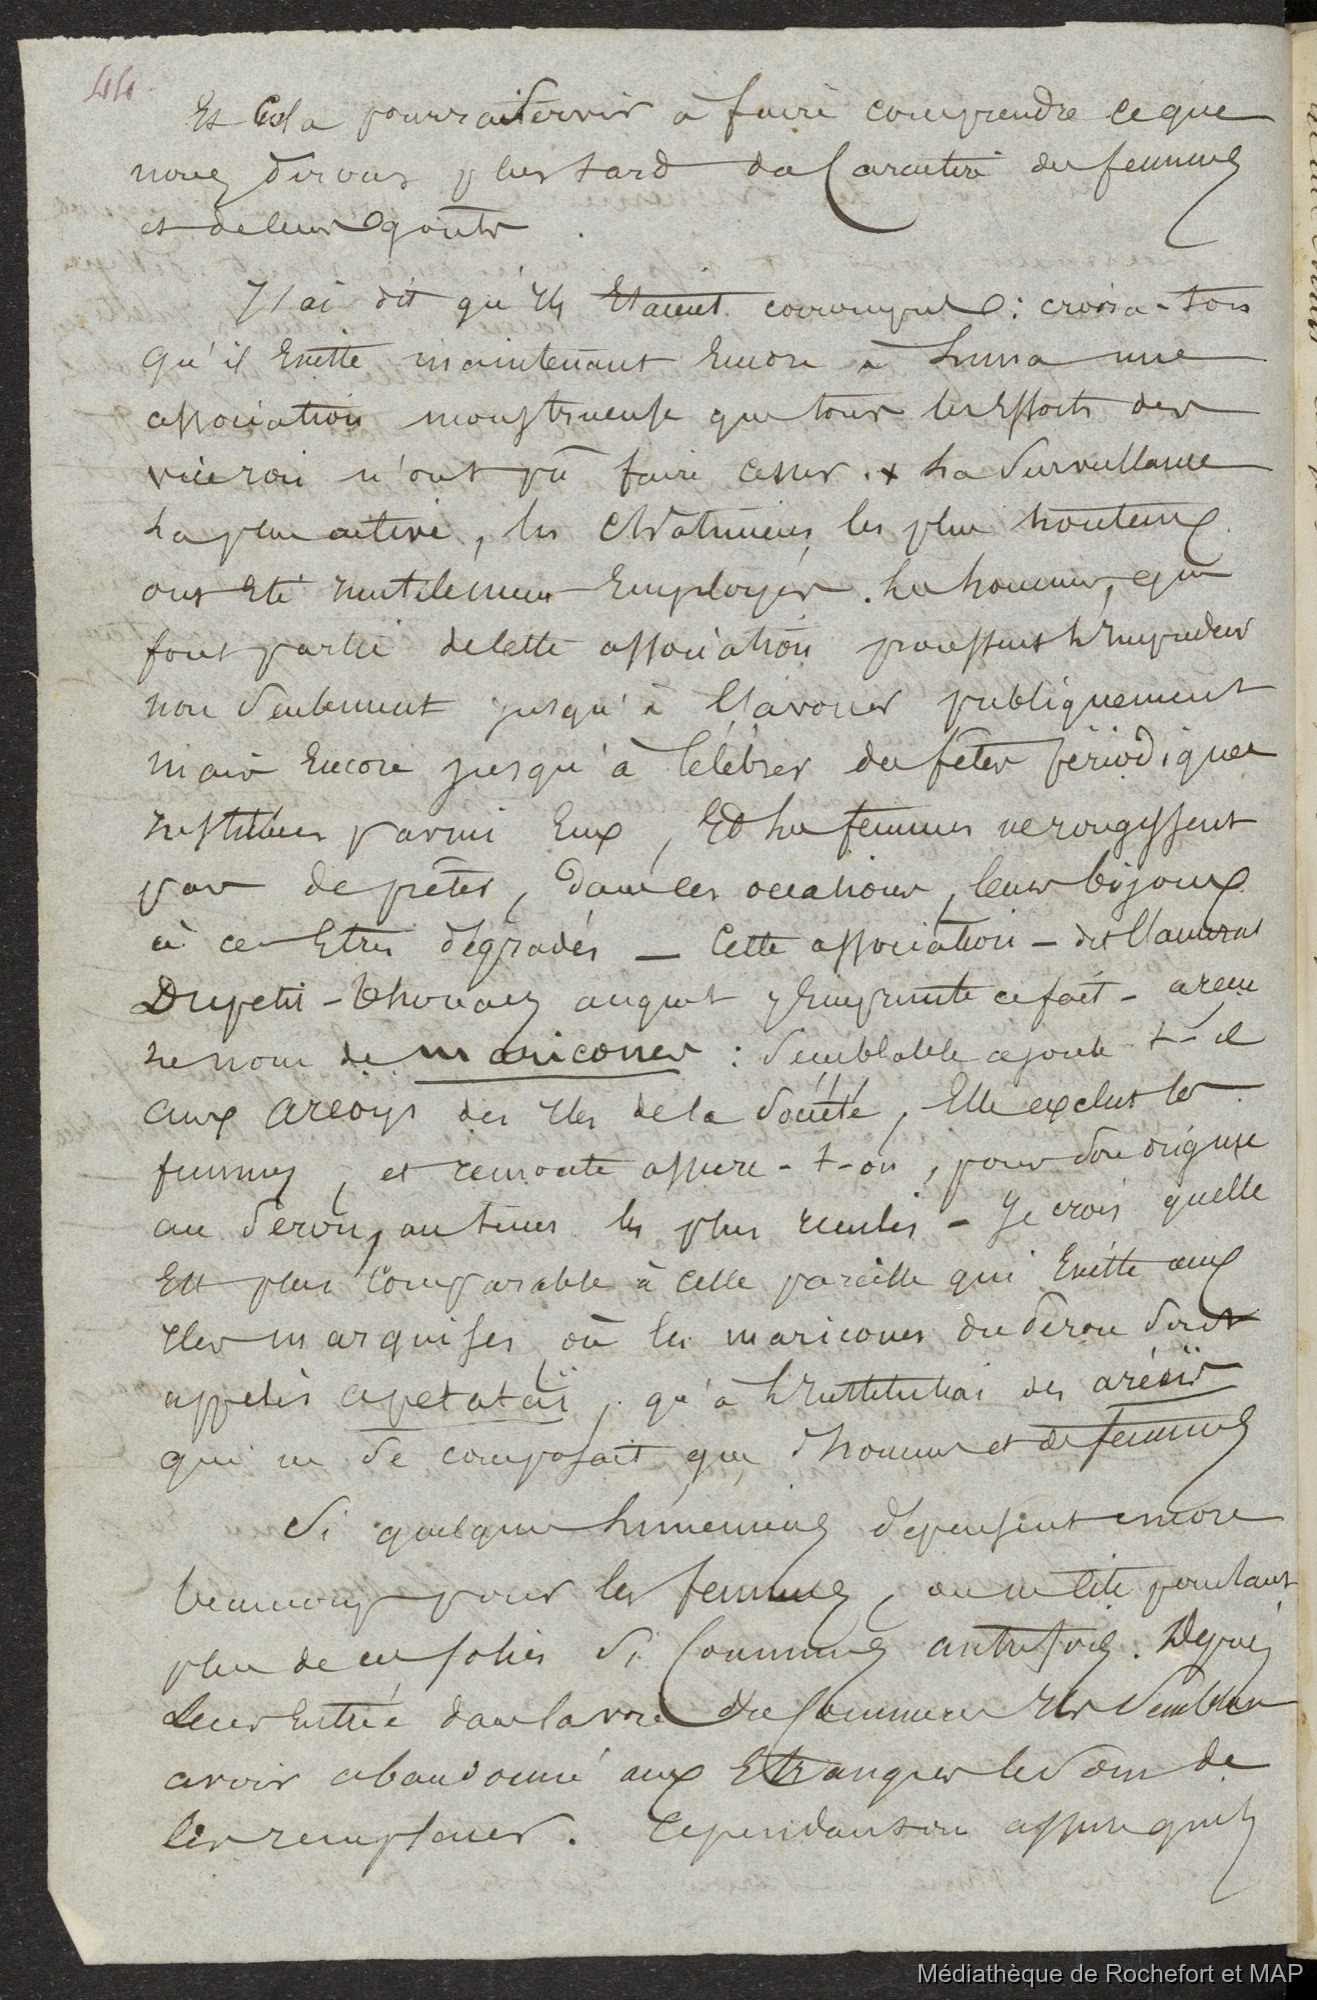 44
Et Cela pourrait servir à faire comprendre ce que
nous dirons plus tard du Caractère des femmes
et de leurs goûts.
J'ai dit qu'ils Etaient corrompus : croira-t-on
qu'il Existe maintenant Encore à Lima une
association monstrueuse que tous les Efforts des
vicerois n'ont pû faire cesser. x La Surveillance
La plus active, les Chatimens les plus honteux
ont Eté inutilement Employés. Les hommes, qui
font partie de cette association poussent l'impudeur
non Seulement jusqu'à l'avouer publiquement
mais Encore jusqu'à Célébrer des fêtes périodiques
instituées parmi Eux, Et Les femmes ne rougissent
pas de prêter, dans ces occasions, leurs bijoux
à ces Etres dégradés — Cette association - dit l'amiral
Dupetit-Thouars auquel j'emprunte ce fait - a reçu
Le nom de maricones : Semblable ajoute-t-il
aux areoys des Iles de la Société, Elle exclut les
femmes, et remonte assure-t-on, pour Son origine
au Pérou, aux tems les plus reculés - Je crois qu'elle
Est plus Comparable à celle pareille qui Existe aux
Iles marquises où les maricones du Pérou Sont
appelés apetataï, qu'à L'Institution des aréoïs
qui ne Se composait que d'hommes et de femmes
Si quelques Liméniens dépensent encore
beaucoup pour les femmes, on ne Cite pourtant
plus de ces folies Si Communes autrefois. Depuis
Leur Entrée dans la voie du Commerce Ils Semblent
avoir abandonné aux Etrangers le Soin de
les remplacer. Cependant on assure qu'ils
Médiathèque de Rochefort et MAP